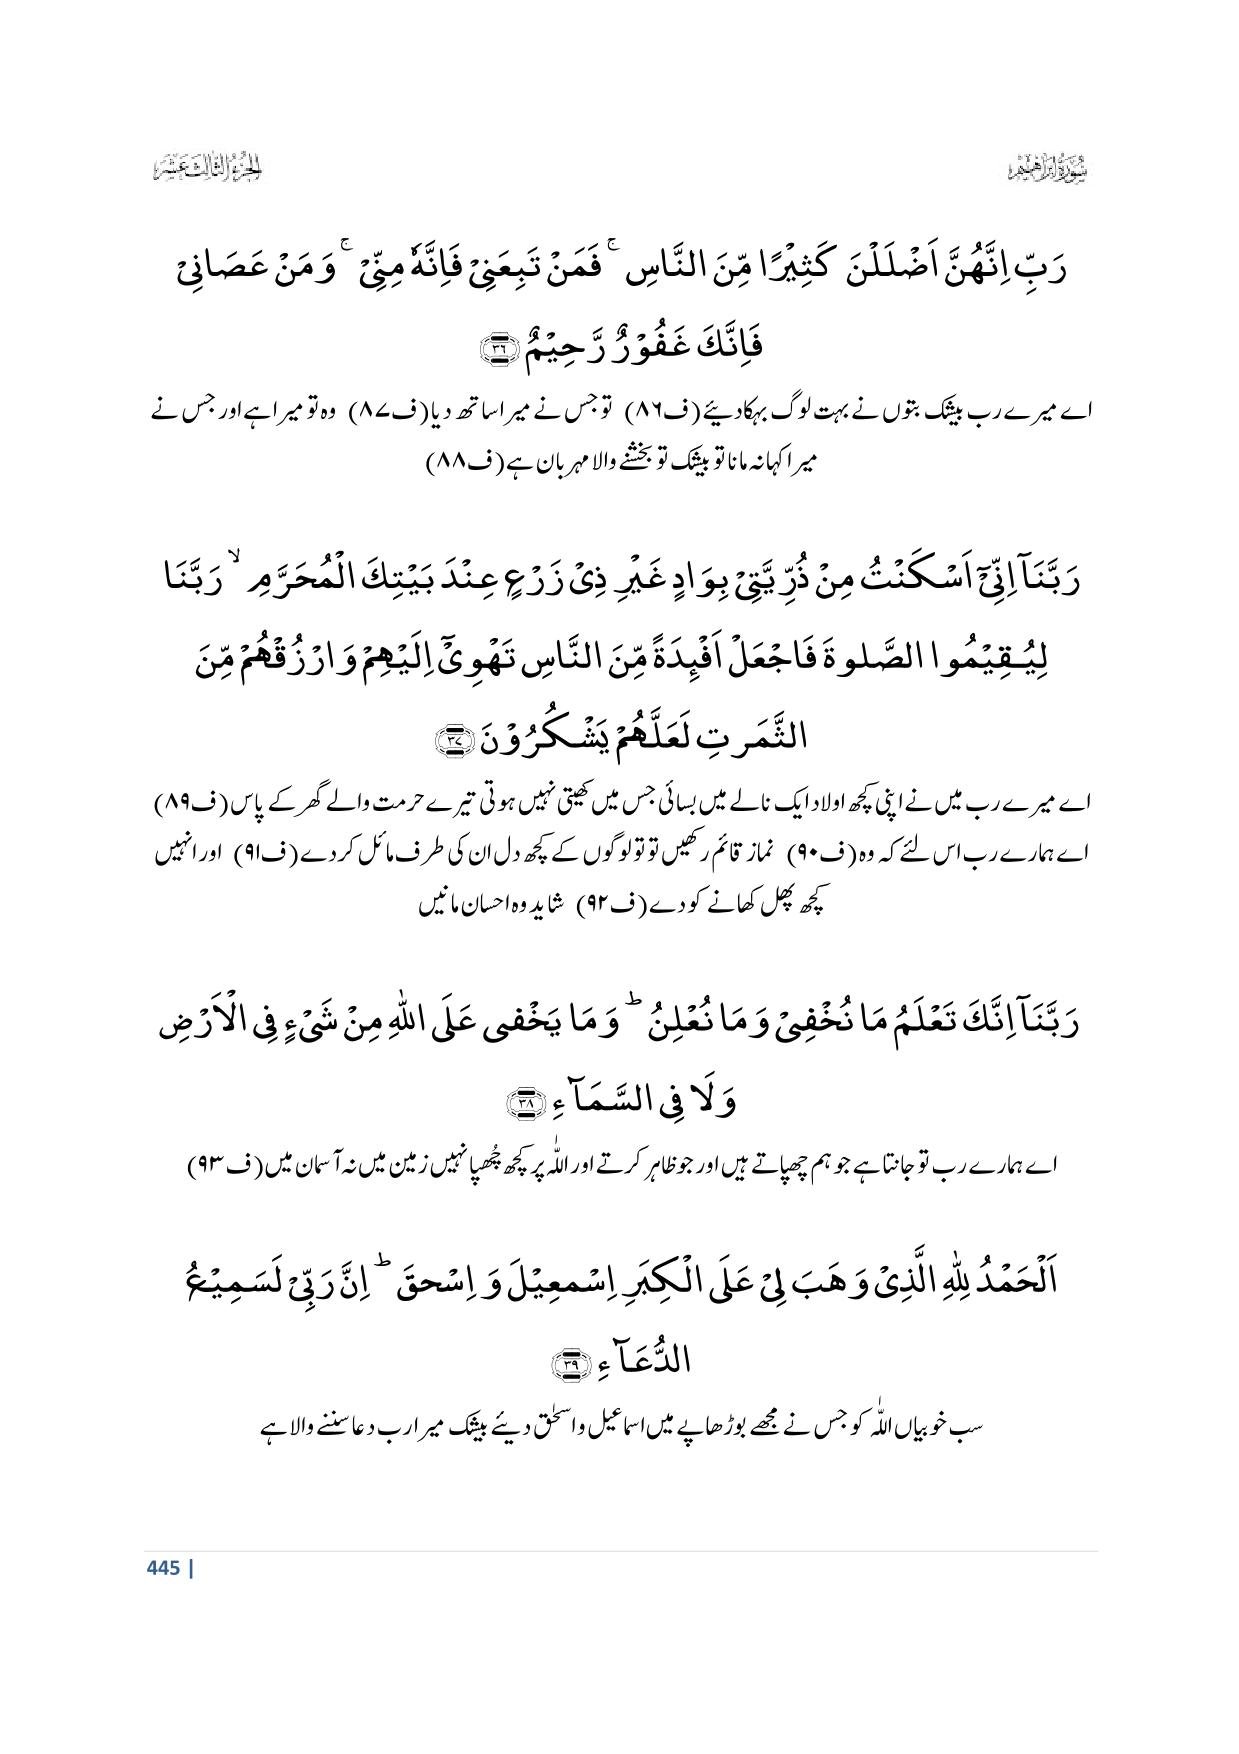 سُوْرَةُ اِبْرَاهِيْم
الجزء الثالث عشر
رَبِّ اِنَّهُنَّ اَضْلَلْنَ كَثِيْرًا مِّنَ النَّاسِ ۚ فَمَنْ تَبِعَنِيْ فَاِنَّهٗ مِنِّيْ ۚ وَ مَنْ عَصَانِيْ
فَاِنَّكَ غَفُوْرٌ رَّحِيْمٌ ﴿۳۶﴾
اے میرے رب بیشک بتوں نے بہت لوگ بہکادیئے (ف۸۶) تو جس نے میرا ساتھ دیا (ف۸۷) وہ تو میرا ہے اور جس نے
میرا کہا نہ مانا تو بیشک تو بخشنے والا مہربان ہے (ف۸۸)
رَبَّنَاۤ اِنِّيْۤ اَسْكَنْتُ مِنْ ذُرِّيَّتِيْ بِوَادٍ غَيْرِ ذِيْ زَرْعٍ عِنْدَ بَيْتِكَ الْمُحَرَّمِ ۙ رَبَّنَا
لِيُقِيْمُوا الصَّلوةَ فَاجْعَلْ اَفْئِدَةً مِّنَ النَّاسِ تَهْوِيْۤ اِلَيْهِمْ وَ ارْزُقْهُمْ مِّنَ
الثَّمَرتِ لَعَلَّهُمْ يَشْكُرُوْنَ ﴿۳۷﴾
اے میرے رب میں نے اپنی کچھ اولاد ایک نالے میں بسائی جس میں کھیتی نہیں ہوتی تیرے حرمت والے گھر کے پاس (ف۸۹)
اے ہمارے رب اس لئے کہ وہ (ف۹۰) نماز قائم رکھیں تو تو لوگوں کے کچھ دل ان کی طرف مائل کردے (ف۹۱) اور انہیں
کچھ پھل کھانے کو دے (ف۹۲) شاید وہ احسان مانیں
رَبَّنَاۤ اِنَّكَ تَعْلَمُ مَا نُخْفِيْ وَ مَا نُعْلِنُ ؕ وَ مَا يَخْفي عَلَي اللّٰهِ مِنْ شَيْءٍ فِي الْاَرْضِ
وَ لَا فِي السَّمَآءِ ﴿۳۸﴾
اے ہمارے رب تو جانتا ہے جو ہم چھپاتے ہیں اور جو ظاہر کرتے اور اللّٰہ پر کچھ چُھپا نہیں زمین میں نہ آسمان میں (ف۹۳)
اَلْحَمْدُ لِلّٰهِ الَّذِيْ وَهَبَ لِيْ عَلَي الْكِبَرِ اِسْمعِيْلَ وَ اِسْحقَ ؕ اِنَّ رَبِّيْ لَسَمِيْعُ
الدُّعَآءِ ﴿۳۹﴾
سب خوبیاں اللّٰہ کو جس نے مجھے بوڑھاپے میں اسماعیل و اسحٰق دیئے بیشک میرا رب دعا سننے والا ہے
445 |